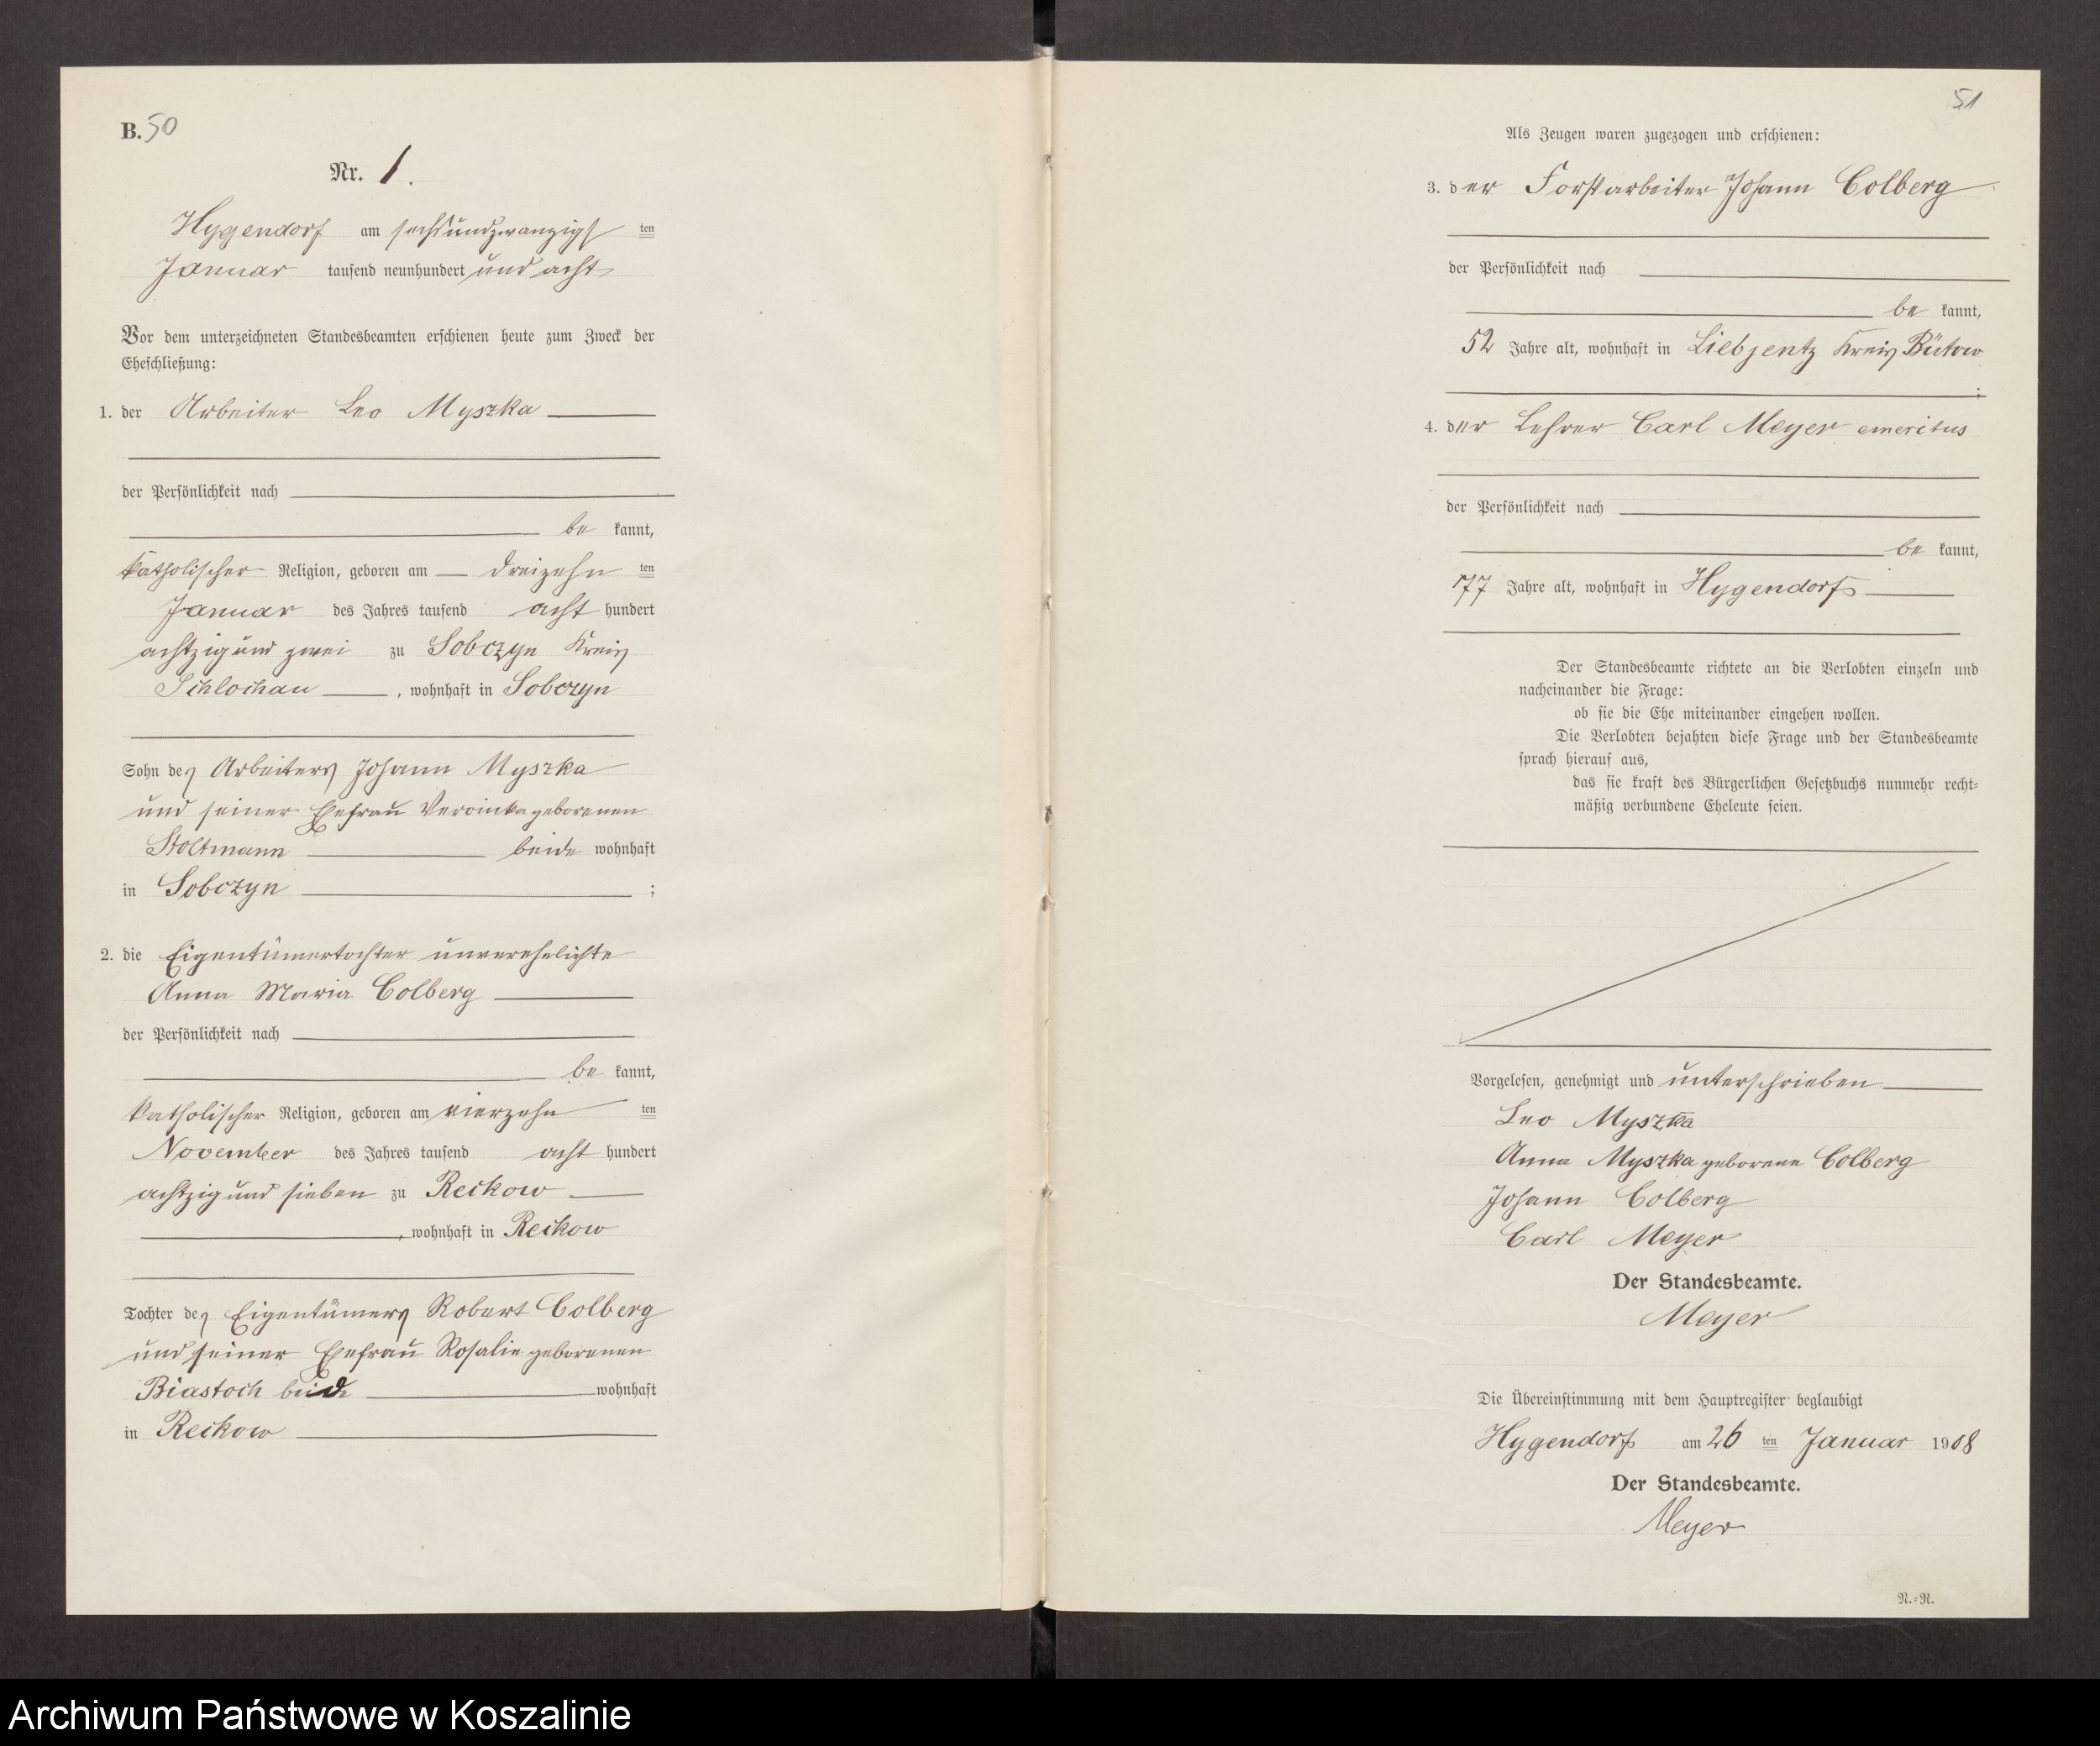 B. 50
Nr. 1.
Hygendorf am sechsundzwanzigsten
Januar tausend neunhundert und acht
Vor dem unterzeichneten Standesbeamten erschienen heute zum Zweck der
Eheschließung:
1. der Arbeiter Leo Myszka
der Persönlichkeit nach
be kannt,
katholischer Religion, geboren am dreizehn ten
Januar des Jahres tausend acht hundert
achtzig und zwei zu Sobczyn Kreis
Schlochau, wohnhaft in Sobczyn
Sohn des Arbeiters Johann Myszka
und seiner Ehefrau Veroinka geborenen
Stoltmann beide wohnhaft
in Sobczyn ;
2. die Eigentümertochter unverehelichte
Anna Maria Colberg
der Persönlichkeit nach
be kannt,
katholischer Religion, geboren am vierzehn ten
November des Jahres tausend acht hundert
achtzig und sieben zu Reckow
, wohnhaft in Reckow
Tochter des Eigentümers Robert Colberg
und seiner Ehefrau Rosalie geborenen
Biastoch beide wohnhaft
in Reckow
51
Als Zeugen waren zugezogen und erschienen:
3. der Forstarbeiter Johann Colberg
der Persönlichkeit nach
be kannt,
52 Jahre alt, wohnhaft in Liebjentz Kreis Bütow
;
4. der Lehrer Carl Meyer emeritus
der Persönlichkeit nach
be kannt,
77 Jahre alt, wohnhaft in Hygendorf
Der Standesbeamte richtete an die Verlobten einzeln und
nacheinander die Frage:
ob sie die Ehe miteinander eingehen wollen.
Die Verlobten bejahten diese Frage und der Standesbeamte
sprach hierauf aus,
das sie kraft des Bürgerlichen Gesetzbuchs nunmehr recht-
mäßig verbundene Eheleute seien.
Vorgelesen, genehmigt und unterschrieben
Leo Myszka
Anna Myszka geborene Colberg
Johann Colberg
Carl Meyer
Der Standesbeamte.
Meyer
Die Übereinstimmung mit dem Hauptregister beglaubigt
Hygendorf am 26 ten Januar 1908
Der Standesbeamte.
Meyer
N.-R.
Archiwum Państwowe w Koszalinie